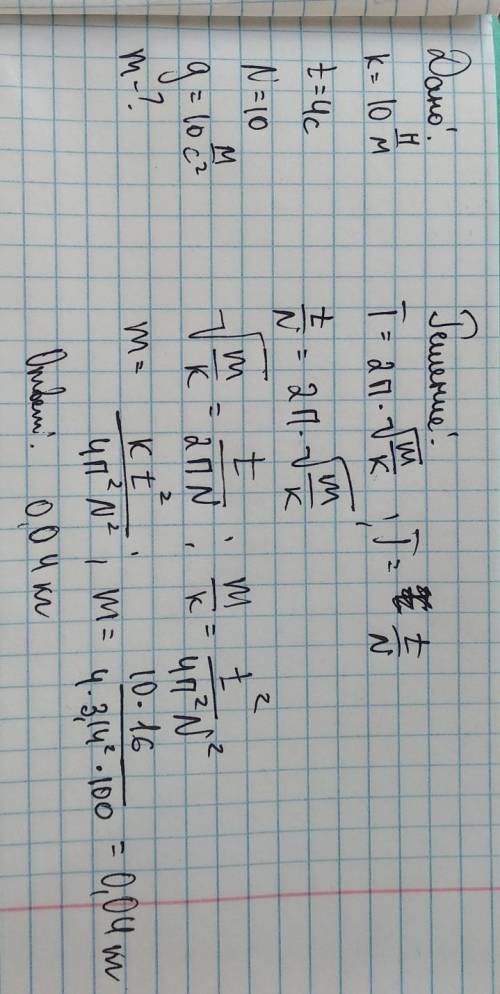 Дано:
k = 10 Н/м
t = 4с
N = 10
g = 10 м/с²
m - ?
Решение:
T = 2π · √(m/k) ; T = t/N
t/N = 2π · √(m/k) ;
√(m/k) = t/(2πN) ; m/k = t²/(4π²N²)
m = kt²/(4π²N²) ; m = (10 · 16)/(4 · 3,14² · 100) = 0,04 кг
Ответ: 0,04 кг